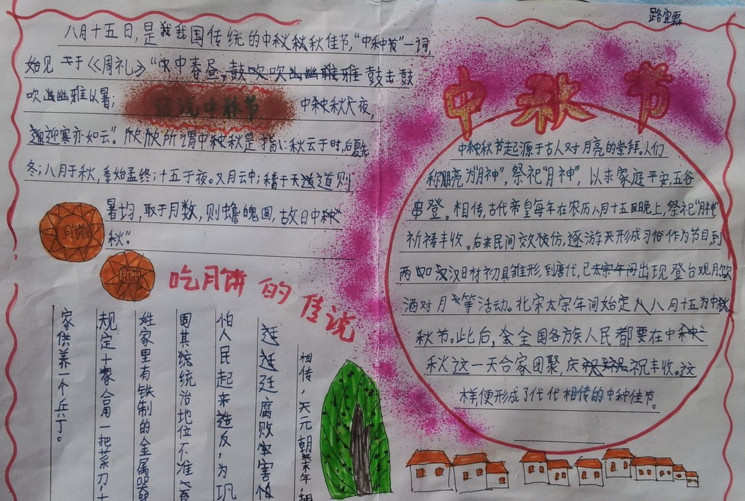 八月十五日,是我国传统的中秋秋佳节,"中秋节"一词,
始见于《周礼》"中春昼,鼓击鼓
吹豳雅以暑;
中秋夜,
迎寒亦如云"。所谓中秋是指:秋云于时,后夏先
冬;八月于秋,季始孟终;十五于夜。又月云中;稽于天道则
暑均,取于月数,则蟾魄圆,故曰中秋
秋"。
中秋节
中秋节起源于古人对月亮的崇拜。人们
称月亮为"月神",祭祀"月神",以求家庭平安,五谷
丰登。相传,古代帝皇每年在农历八月十五日晚上,祭祀"月神"
祈祷丰收。后来民间效仿,逐渐形成习俗作为节日到
两汉时初具雏形,到唐代,已出现登台观月
酒对月等活动。北宋太宗年间始定八月十五为中秋
秋节。此后,全国各族人民都要在中秋
秋这一天合家团聚,庆祝丰收。这
样便形成了代代相传的中秋佳节。
吃月饼的传说
相传,天元朝末年,朝
廷腐败,害怕
怕人民起来造反,为巩
固其统治地位,不准
姓家里有铁制的金属器
规定十家合用一把菜刀,十
家供养一个兵丁。